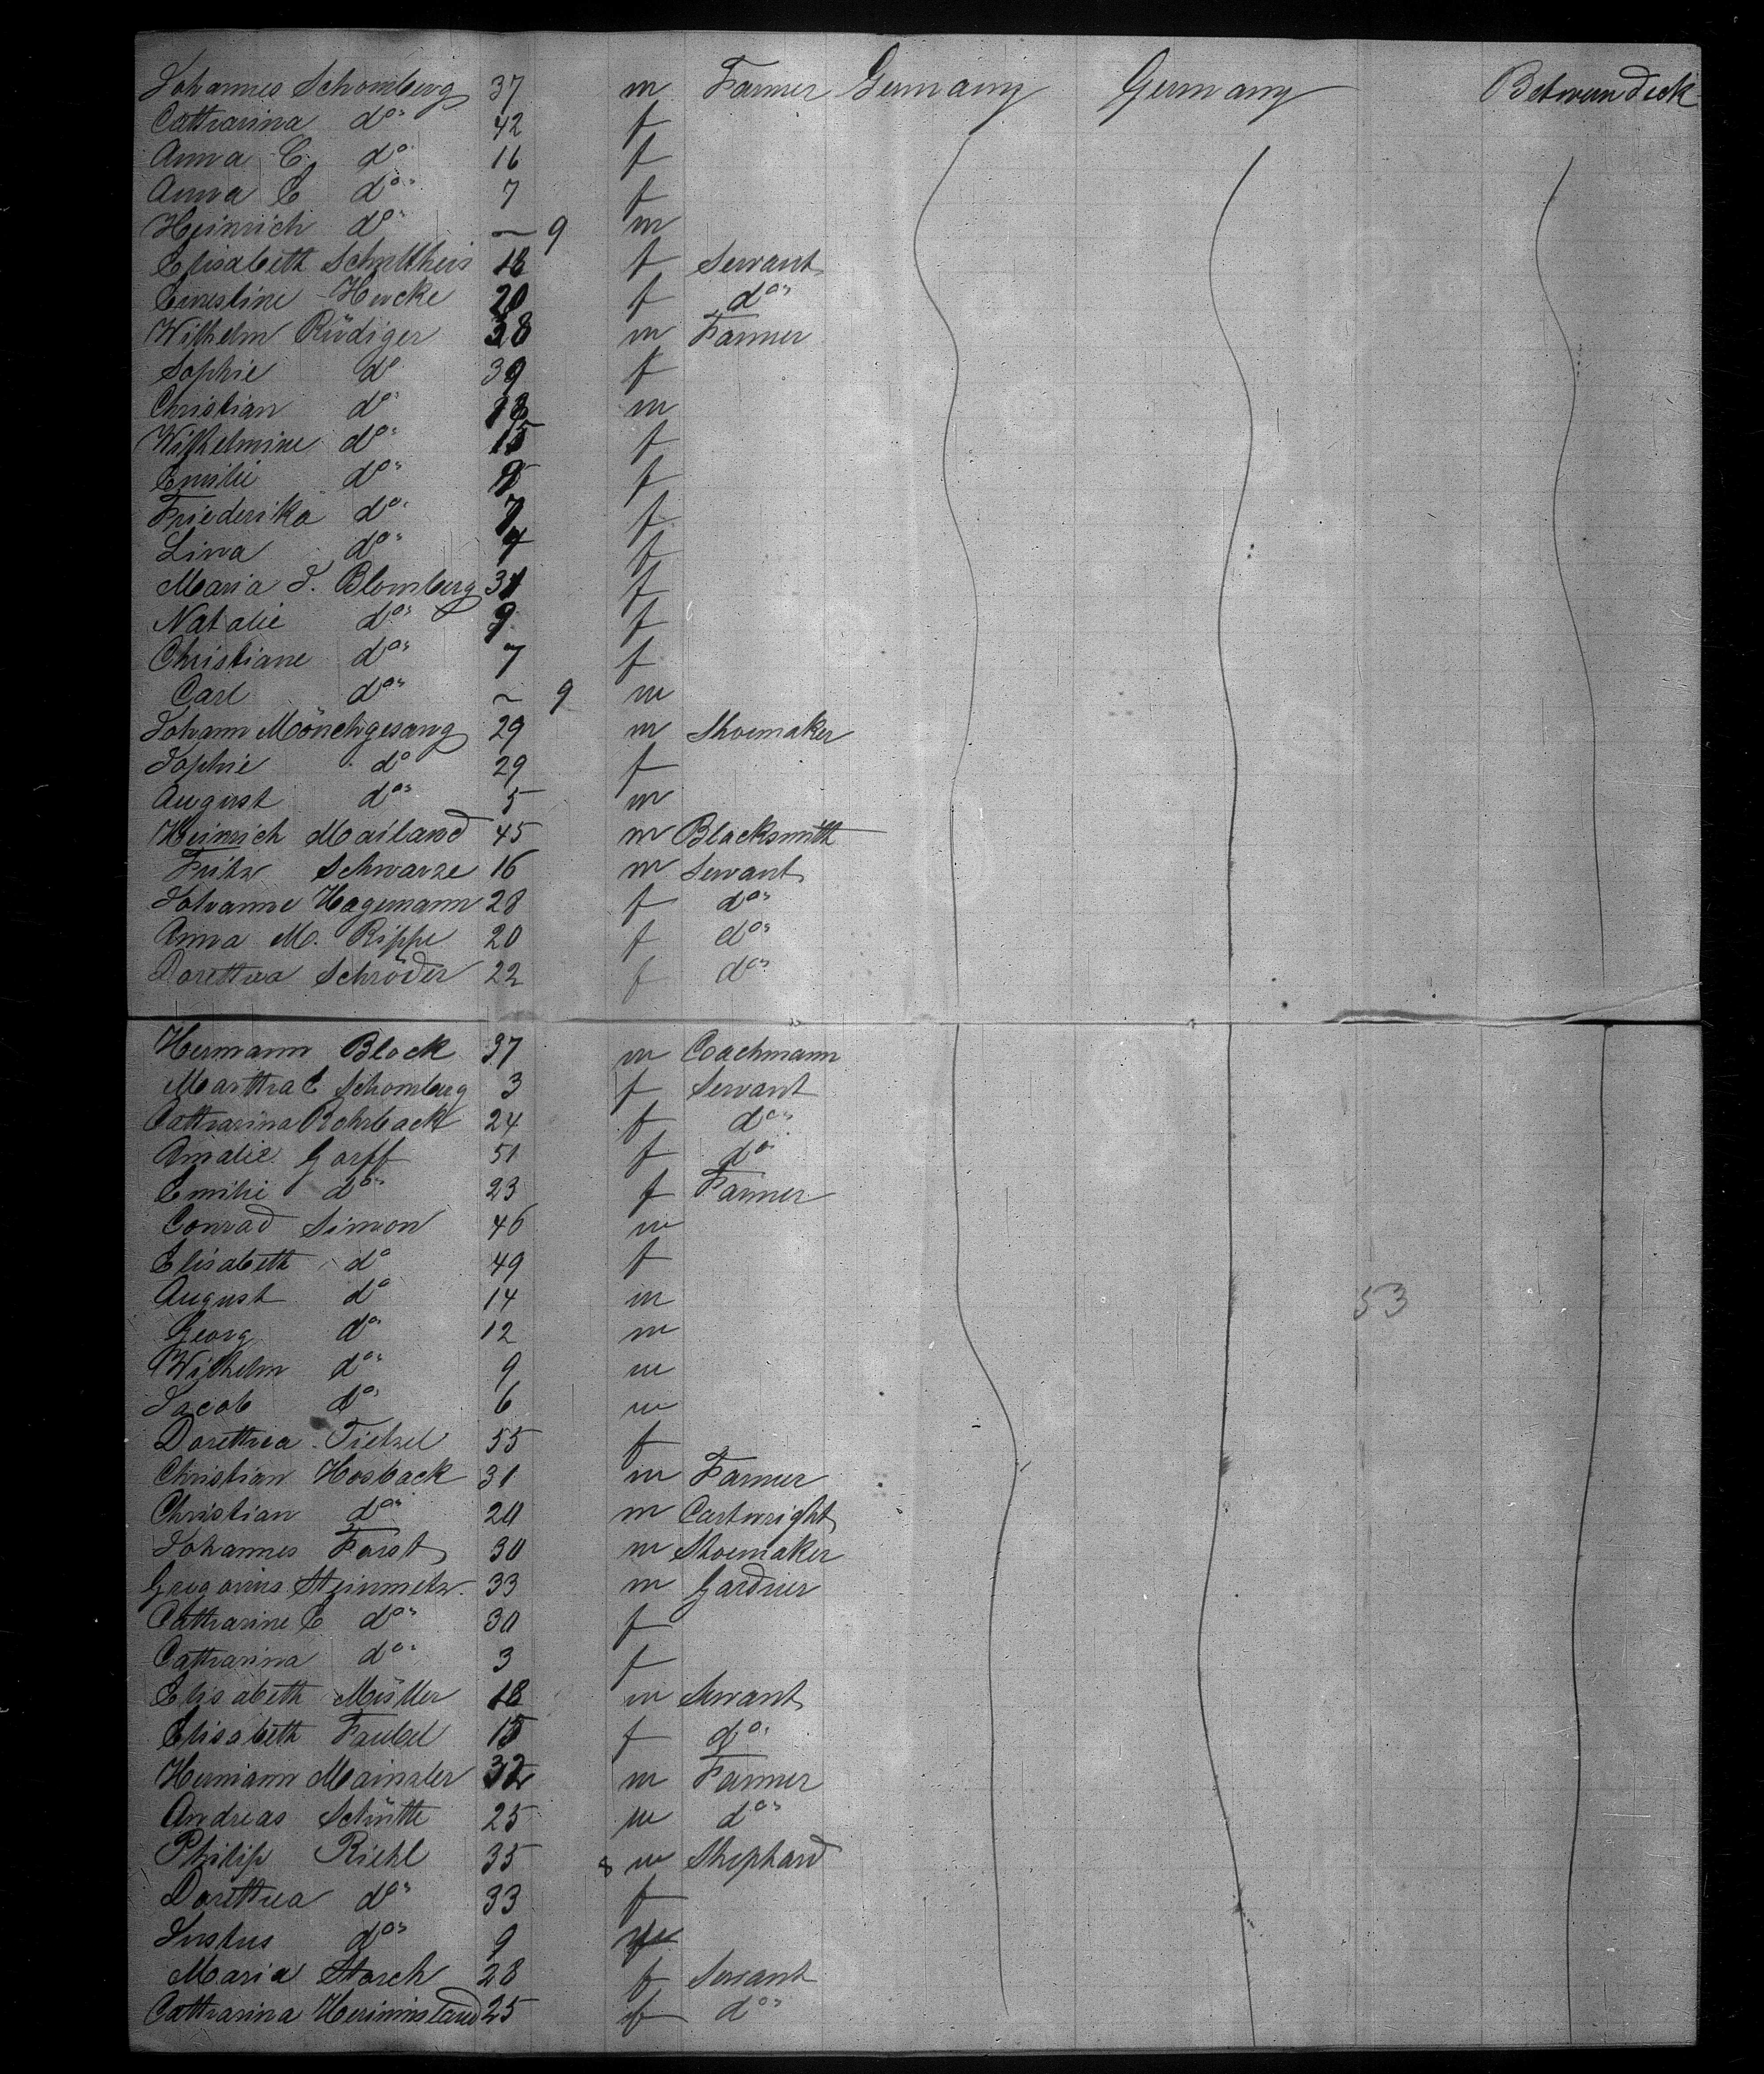 Johannes Schomberg 37 m Farmer Germany Germany Between deck
Cathrarina do 42 f
Anna C. do 16 f
Anna E do 7 f
Heinrich do ~ 9 m
Elisabeth Schultheis 18 f Servant
Ernestine Hucke 20 f do
Wilhelm Rüdiger 38 m Farmer
Sophie do 39 f
Christian do 18 m
Wilhelmine do 15 f
Emilie do 9 f
Friederika do 7 f
Lina do 4 f
Maria J. Blomberg 31 f
Natalie do 9 f
Christiane do 7 f
Carl do ~ 9 m
Johann Mönchgesang 29 m Shoemaker
Sophie do 29 f
August do 5 m
Heinrich Mailand 45 m Blacksmith
Fritz Schwarze 16 m Servant
Johanne Hagemann 28 f do
Anna M. Rippe 20 f do
Dorethea Schröder 22 f do
Hermann Block 37 m Coachmann
Martha E Schomberg 3 f Servant
Cathrarina Rohrback 24 f do
Amalie Gorff 51 f do
Emilie do 23 f Farmer
Conrad Simon 46 m
Elisabeth do 49 f
August do 14 m 53
Georg do 12 m
Wilhelm do 9 m
Jacob do 6 m
Dorethea Tietzel 55 f
Christian Hosback 31 m Farmer
Christian do 20 m Cartwright
Johannes Forst 30 m Shoemaker
Gregorius Steinmetz 33 m Gardner
Cathrarine E do 30 f
Cathrarina do 3 f
Elisabeth Müller 18 m Servant
Elisabeth Faubel 15 f do
Hermann Mainzler 32 m Farmer
Andreas Schütte 25 m do
Philip Riehl 35 m Shephard
Dorethea do 33 f
Justus do 9 m
Maria Storch 28 f Servant
Cathrarina 25 f do